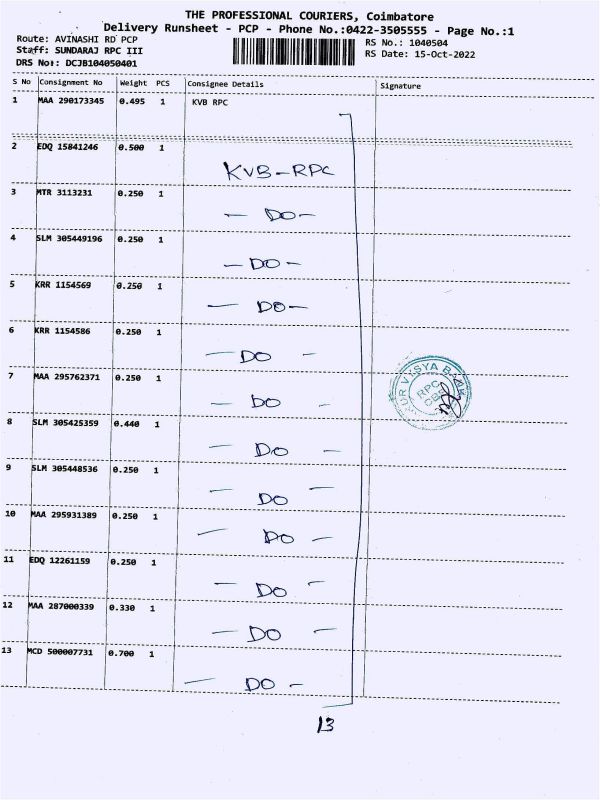 THE PROFESSIONAL COURIERS, Coimbatore
Delivery Runsheet - PCP - Phone No.:0422-3505555 - Page No.:1
Route: AVINASHI RD PCP
Staff: SUNDARAJ RPC III
DRS No: DCJB104050401
RS No.: 1040504
RS Date: 15-Oct-2022
S No Consignment No Weight PCS Consignee Details Signature
1 MAA 290173345 0.495 1 KVB RPC
2 EDQ 15841246 0.500 1 KVB-RPC
3 MTR 3113231 0.250 1 - DO -
4 SLM 305449196 0.250 1 - DO -
5 KRR 1154569 0.250 1 - DO -
6 KRR 1154586 0.250 1 - DO -
7 MAA 295762371 0.250 1 - DO -
8 SLM 305425359 0.440 1 - DO -
9 SLM 305448536 0.250 1 - DO -
10 MAA 295931389 0.250 1 - DO -
11 EDQ 12261159 0.250 1 - DO -
12 MAA 287000339 0.330 1 - DO -
13 MCD 500007731 0.700 1 - DO -
13
VYSYA
RPC